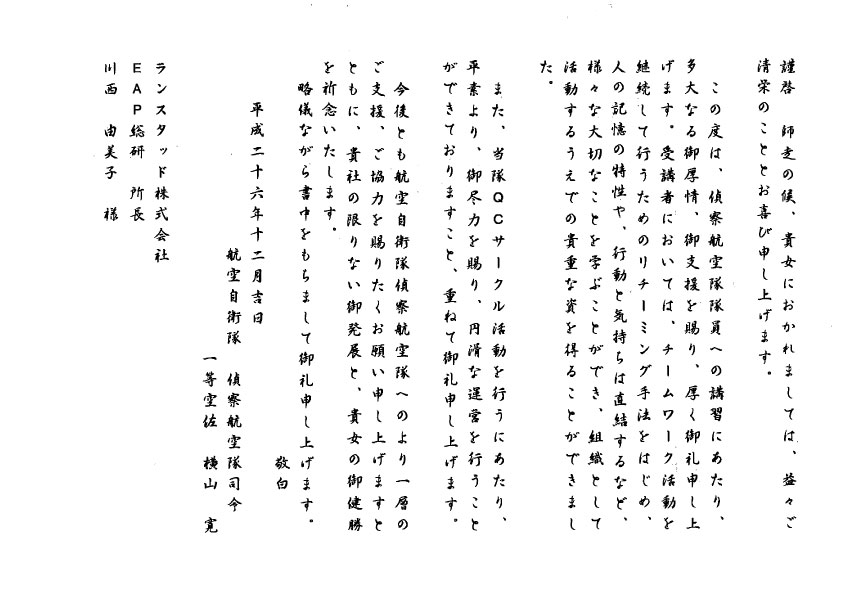 謹啓　師走の候、貴女におかれましては、益々ご
清栄のこととお喜び申し上げます。
この度は、偵察航空隊隊員への講習にあたり、
多大なる御厚情、御支援を賜り、厚く御礼申し上
げます。受講者においては、チームワーク活動を
継続して行うためのリチーミング手法をはじめ、
人の記憶の特性や、行動と気持ちは直結するなど、
様々な大切なことを学ぶことができ、組織として
活動するうえでの貴重な資を得ることができまし
た。
また、当隊ＱＣサークル活動を行うにあたり、
平素より、御尽力を賜り、円滑な運営を行うこと
ができておりますこと、重ねて御礼申し上げます。
今後とも航空自衛隊偵察航空隊へのより一層の
ご支援、ご協力を賜りたくお願い申し上げますと
ともに、貴社の限りない御発展と、貴女の御健勝
を祈念いたします。
略儀ながら書中をもちまして御礼申し上げます。
敬白
平成二十六年十二月吉日
航空自衛隊　偵察航空隊司令
一等空佐　横山　寛
ランスタッド株式会社
ＥＡＰ総研　所長
川西　由美子　様